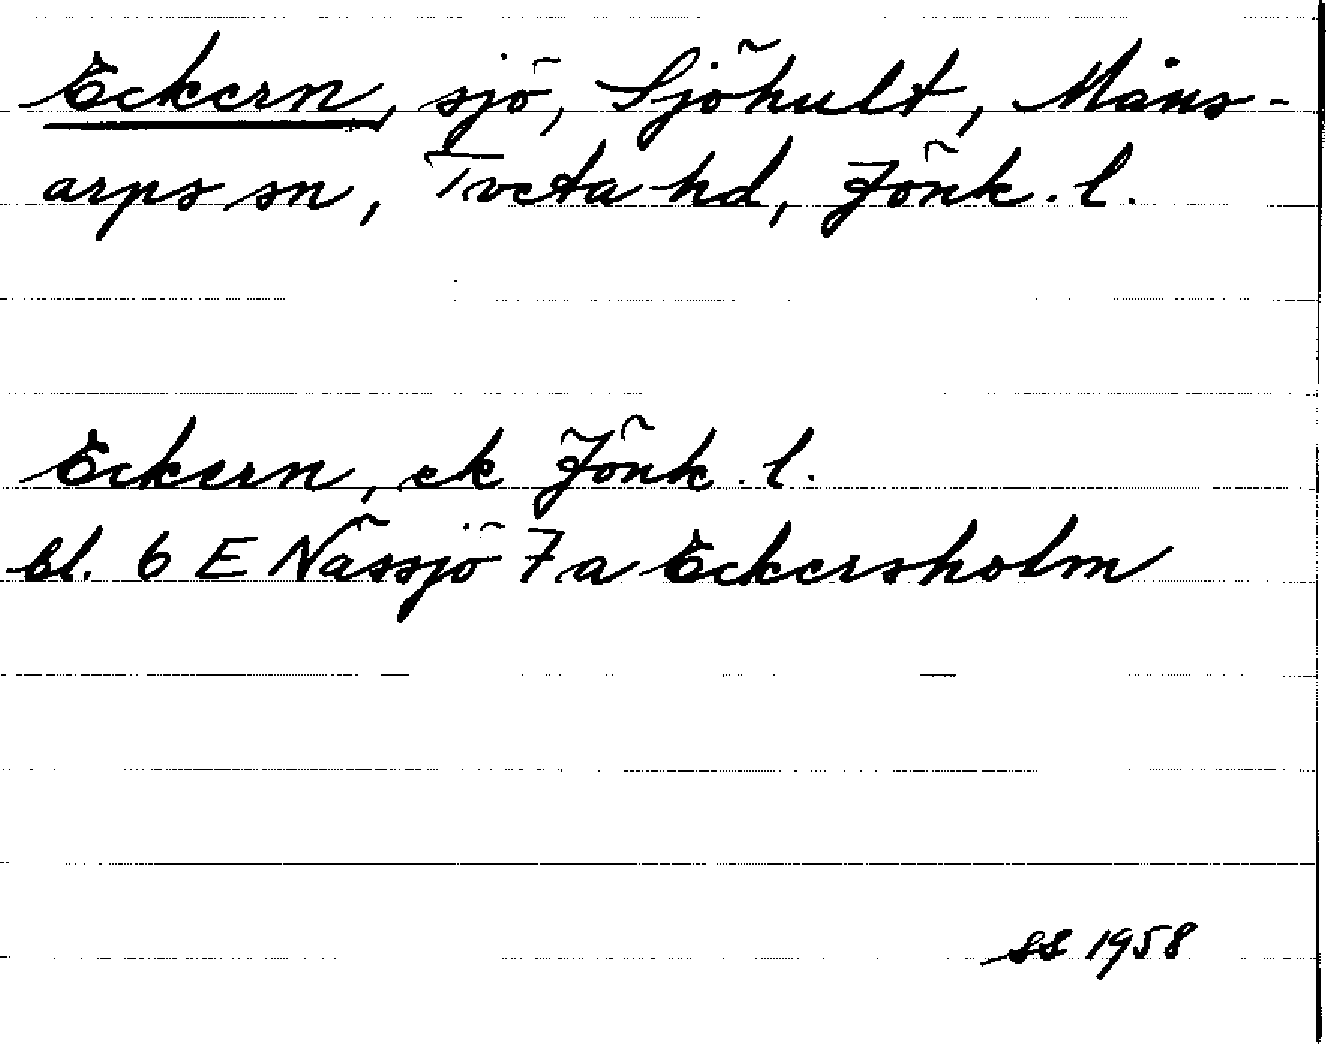 Eckern, sjö, Sjöhult, Måns-
arps sn, Tveta hd, Jönk. l.
Eckern, ek Jönk. l.
bl. 6 E Nässjö 7a Eckersholm
SS 1958